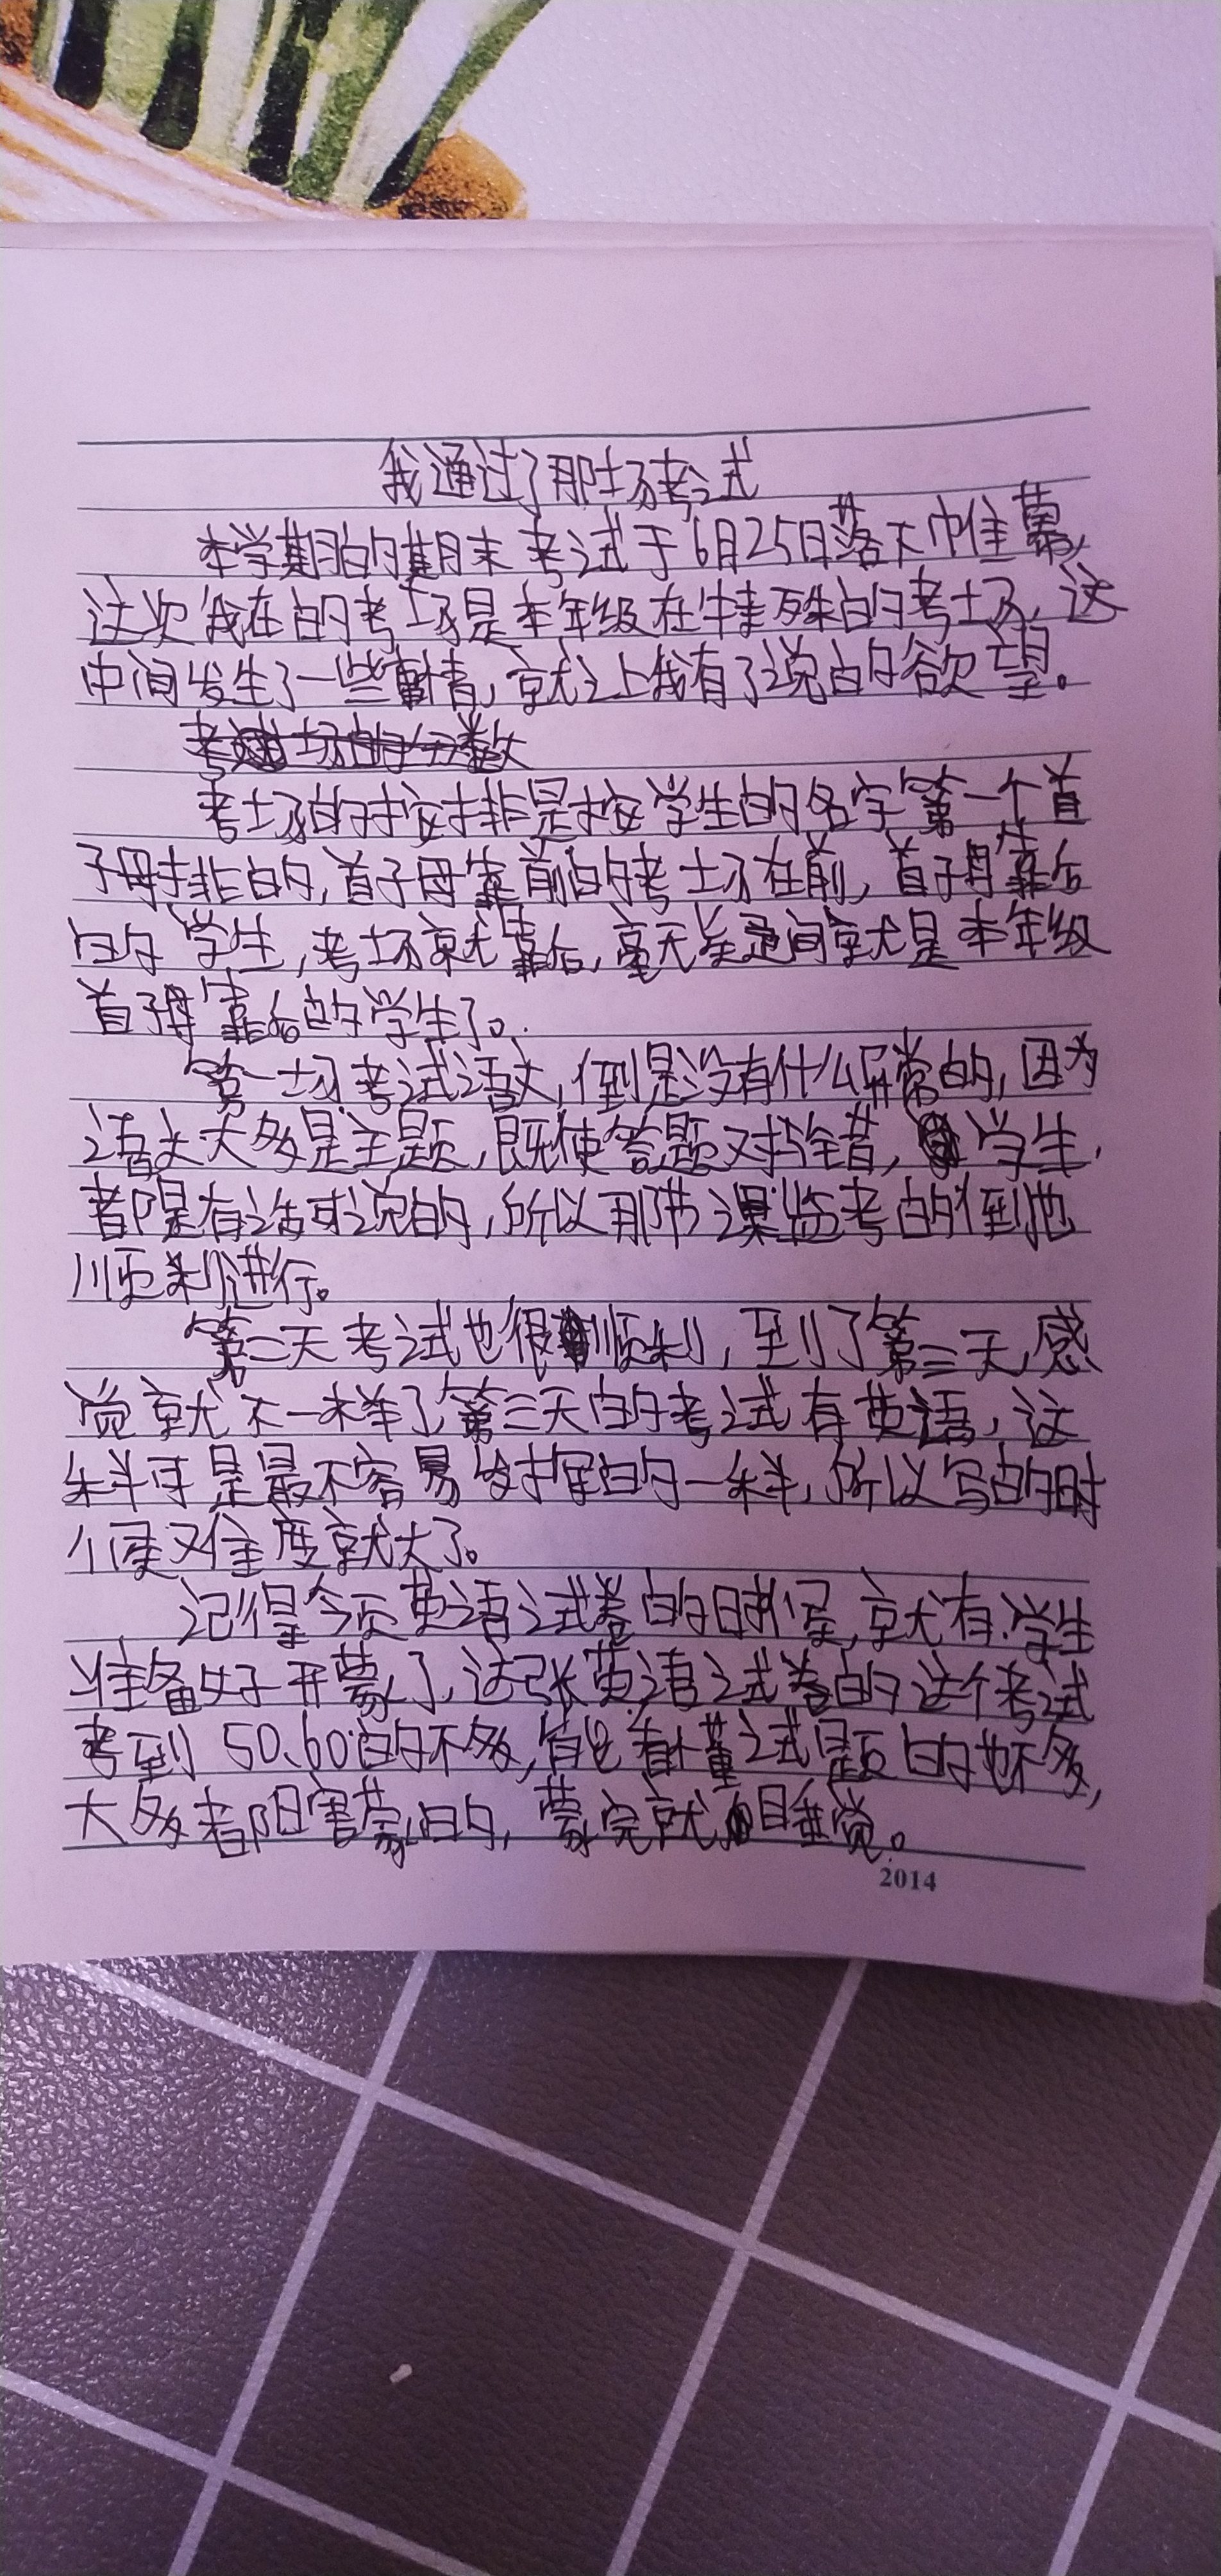 我通过了那场考试
本学期的期末考试于6月25日落下帷幕,
这次我在的考场是本年级在特殊的考场,这
中间发生了一些事情,就让我有了说的欲望。
考场的分数
考场的按排是按学生的名字第一个首
子母排的,首子母靠前的考场在前,首子母靠后
的学生,考场就靠后,毫无疑问就是本年级
首子母靠后的学生了。
第一场考试语文,倒是没有什么异常的,因为
语文大多是主题,既使答题对错,学生
都是有话可说的,所以那节课监考的倒也
顺利进行。
第二天考试也很顺利,到了第三天,感
觉就不一样了,第三天的考试有英语,这
科可是最不容易发挥的一科,所以写的时
候难度就大了。
记得今页英语试卷的时候,就有学生
准备好开蒙了,这张英语试卷的这个考试
考到50、60的不多,有能看懂试题的也不多,
大多都是蒙的,蒙完就睡觉。
2014